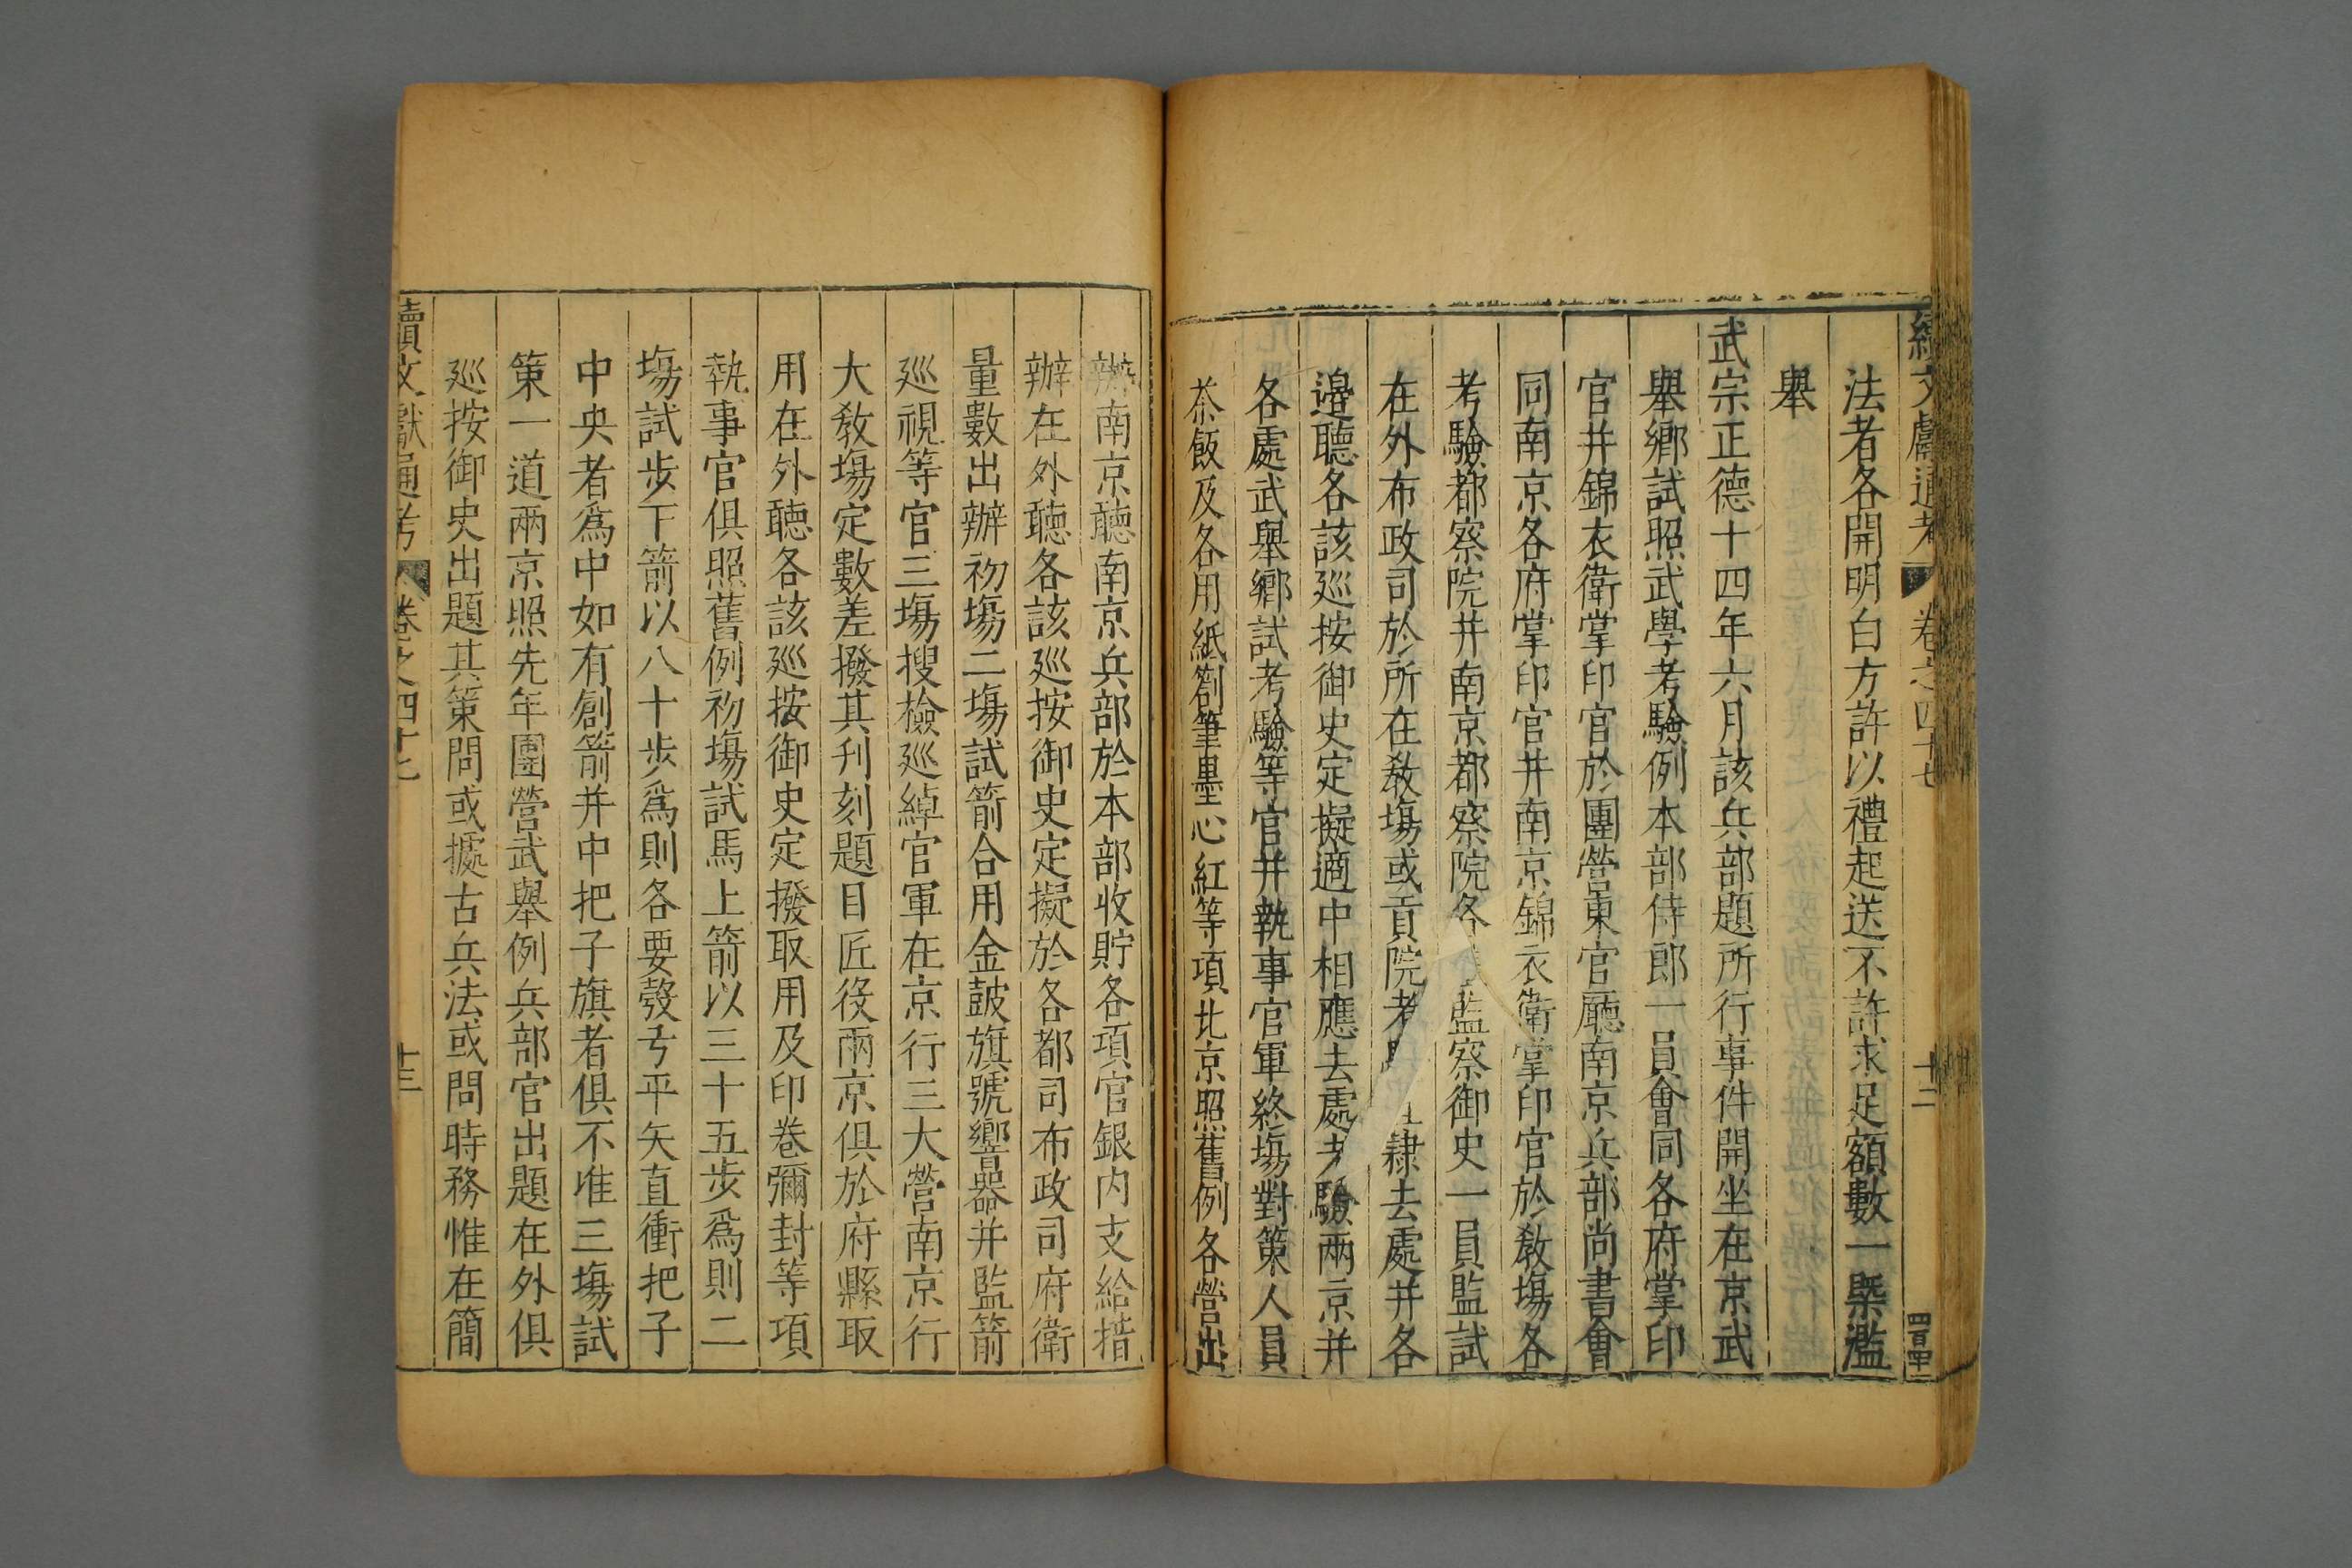 續文獻通考
卷之四十七
十二
法者各開明白方許以禮起送不許求足額數一槩濫
舉
武宗正德十四年六月該兵部題所行事件開坐在京武
舉鄉試照武學考驗例本部侍郎一員會同各府掌印
官并錦衣衛掌印官於團營東官廳南京兵部尚書會
同南京各府掌印官并南京錦衣衛掌印官於教塲各
考驗都察院并南京都察院各監察御史一員監試
在外布政司於所在教塲或貢院考隸去處并各
邉聽各該廵按御史定擬適中相應去處考驗兩京并
各處武舉鄉試考驗等官并執事官軍終塲對策人員
茶飯及各用紙劄筆墨心紅等項北京照舊例各營出
辦南京聽南京兵部於本部收貯各項官銀内支給措
辦在外聽各該廵按御史定擬於各都司布政司府衛
量數出辦初塲二塲試箭合用金鼓旗號響器并監箭
廵視等官三塲搜檢廵綽官軍在京行三大營南京行
大教塲定數差撥其刋刻題目匠役兩京俱於府縣取
用在外聽各該廵按御史定撥取用及印卷彌封等項
執事官俱照舊例初塲試馬上箭以三十五步爲則二
塲試步下箭以八十步爲則各要彀弓平矢直衝把子
中央者爲中如有創箭并中把子旗者俱不准三塲試
策一道兩京照先年團營武舉例兵部官出題在外俱
廵按御史出題其策問或據古兵法或問時務惟在簡
續文獻通考
卷之四十七
十三